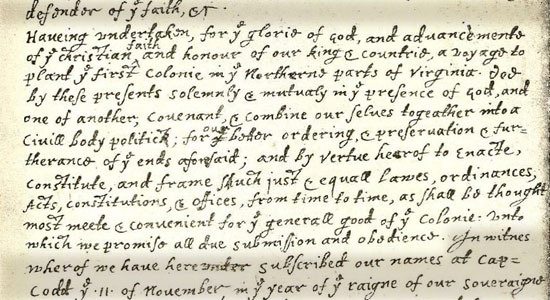 defender of yᵉ faith, &c
Haveing undertaken, for yᵉ glorie of god, and advancemente
of yᵉ christian faith and honour of our king & countrie, a voyage to
plant yᵉ first colonie in yᵉ Northerne parts of Virginia. Doe
by these presents solemnly & mutualy in yᵉ presence of god, and
one of another, covenant, & combine our selves togeather into a
Civill body politick; for our better ordering, & preservation & fur=
therance of yᵉ ends aforesaid; and by vertue hearof to enacte,
constitute, and frame shuch just & equall lawes, ordinances,
Acts, constitutions, & offices, from time to time, as shall be thought
most meete & convenient for yᵉ generall good of yᵉ Colonie: unto
which we promise all due submission and obedience. In witnes
wherof we have hereunder subscribed our names at Cap=
Codd yᵉ .11. of November in yᵉ year of yᵉ raigne of our soveraigne